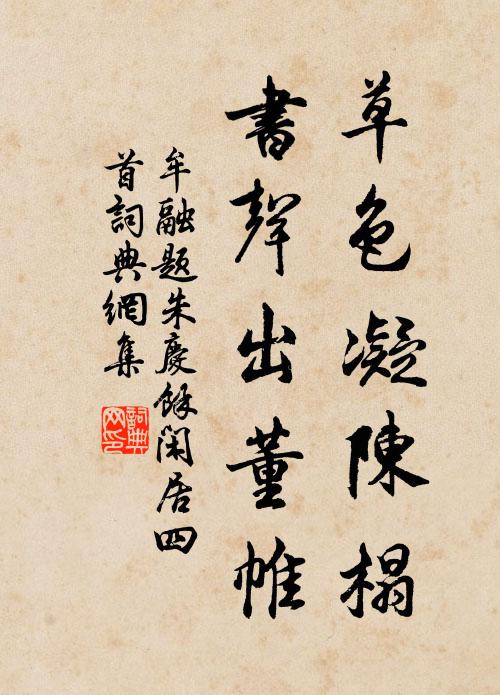 草色凝陳榻
書聲出董帷
牟融題朱慶餘閑居四
首詞典網集
詞典
網印